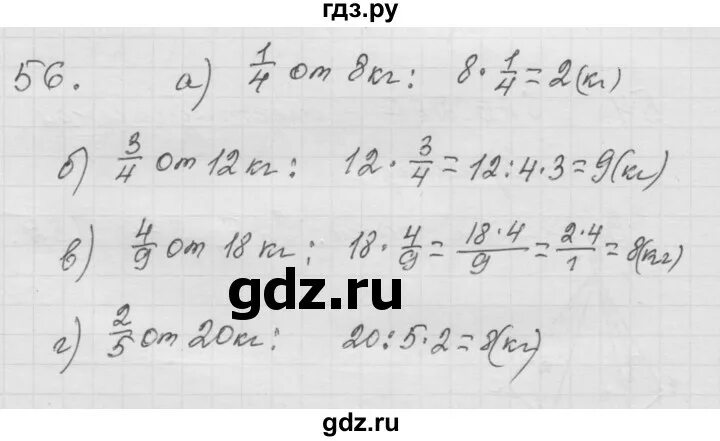 гдз.ру
56. а) 1/4 от 8кг: 8 · 1/4 = 2 (кг)
б) 3/4 от 12 кг: 12 · 3/4 = 12 : 4 · 3 = 9 (кг)
в) 4/9 от 18 кг: 18 · 4/9 = 18 · 4/9 = 2 · 4/1 = 8 (кг)
gdz.ru
г) 2/5 от 20 кг: 20 : 5 · 2 = 8 (кг)
gdz.ru